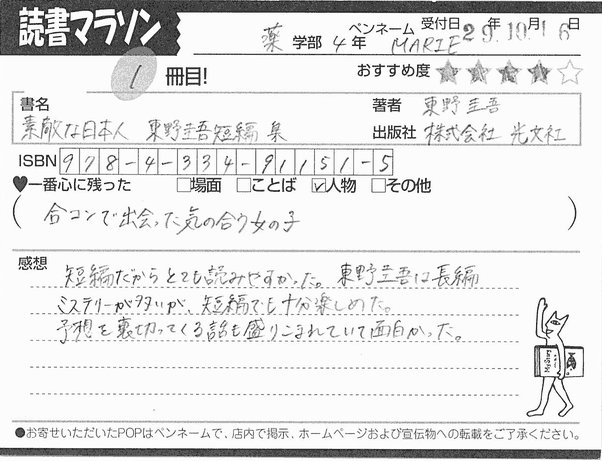 読書マラソン
薬 学部 4 年 ペンネーム MARIE 受付日 29年10月16日
1 冊目!
おすすめ度 ★★★★☆
書名
素敵な日本人 東野圭吾短編集
著者 東野圭吾
出版社 株式会社 光文社
ISBN 978-4-334-91151-5
♥一番心に残った □場面 □ことば ☑人物 □その他
(合コンで出会った気の合う女の子)
感想
短編だからとても読みやすかった。東野圭吾は長編
ミステリーが多いが、短編でも十分楽しめた。
予想を裏切ってくる話も盛りこまれていて面白かった。
●お寄せいただいたPOPはペンネームで、店内で掲示、ホームページおよび宣伝物への転載をご了承ください。